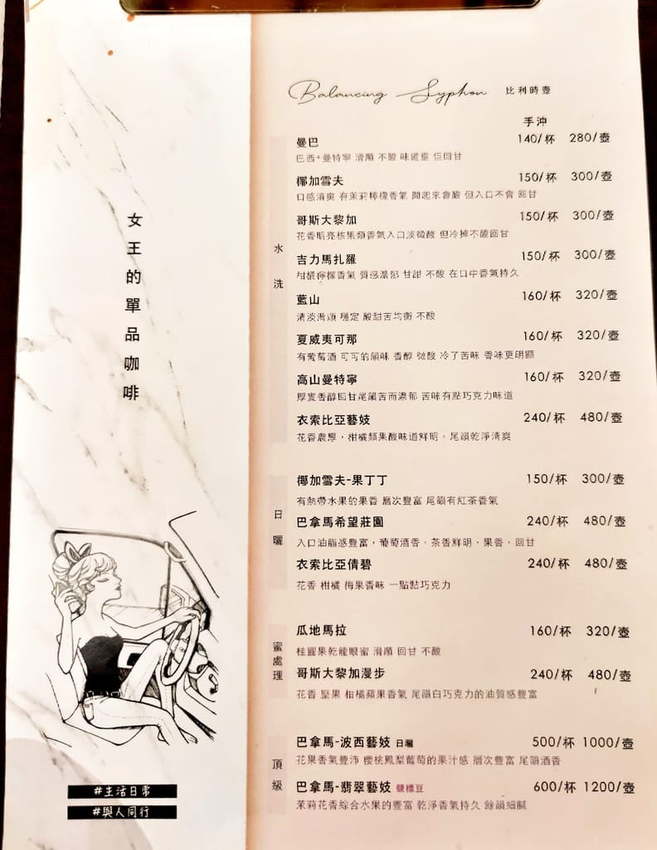 Balancing Syphon 比利時壺
手沖
女王的單品咖啡
水洗
曼巴 140/杯 280/壺
巴西+曼特寧 滑順 不酸 味道重 但回甘
椰加雪夫 150/杯 300/壺
口感清爽 有茉莉檸檬香氣 聞起來會酸 但入口不會 回甘
哥斯大黎加 150/杯 300/壺
花香明亮核果類香氣入口淡微酸 但冷掉不酸回甘
吉力馬扎羅 150/杯 300/壺
柑橘檸檬香氣 質感濃郁 甘甜 不酸 在口中香氣持久
藍山 160/杯 320/壺
清淡滑順 穩定 酸甜苦均衡 不酸
夏威夷可那 160/杯 320/壺
有葡萄酒 可可的韻味 香醇 微酸 冷了苦味 香味更明顯
高山曼特寧 160/杯 320/壺
厚實香醇回甘尾韻苦而濃郁 苦味有點巧克力味道
衣索比亞藝妓 240/杯 480/壺
花香濃厚，柑橘類果酸味道鮮明，尾韻乾淨清爽
日曬
椰加雪夫-果丁丁 150/杯 300/壺
有熱帶水果的果香 層次豐富 尾韻有紅茶香氣
巴拿馬希望莊園 240/杯 480/壺
入口油脂感豐富，葡萄酒香、茶香鮮明、果香、回甘
衣索比亞倩碧 240/杯 480/壺
花香 柑橘 梅果香味 一點點巧克力
蜜處理
瓜地馬拉 160/杯 320/壺
桂圓果乾龍眼蜜 滑順 回甘 不酸
哥斯大黎加漫步 240/杯 480/壺
花香 堅果 柑橘蘋果香氣 尾韻白巧克力的油質感豐富
頂級
巴拿馬-波西藝妓 日曬 500/杯 1000/壺
花果香氣豐沛 櫻桃鳳梨葡萄的果汁感 層次豐富 尾韻酒香
巴拿馬-翡翠藝妓 競標豆 600/杯 1200/壺
茉莉花香綜合水果的豐富 乾淨香氣持久 餘韻細膩
#生活日常
#與人同行